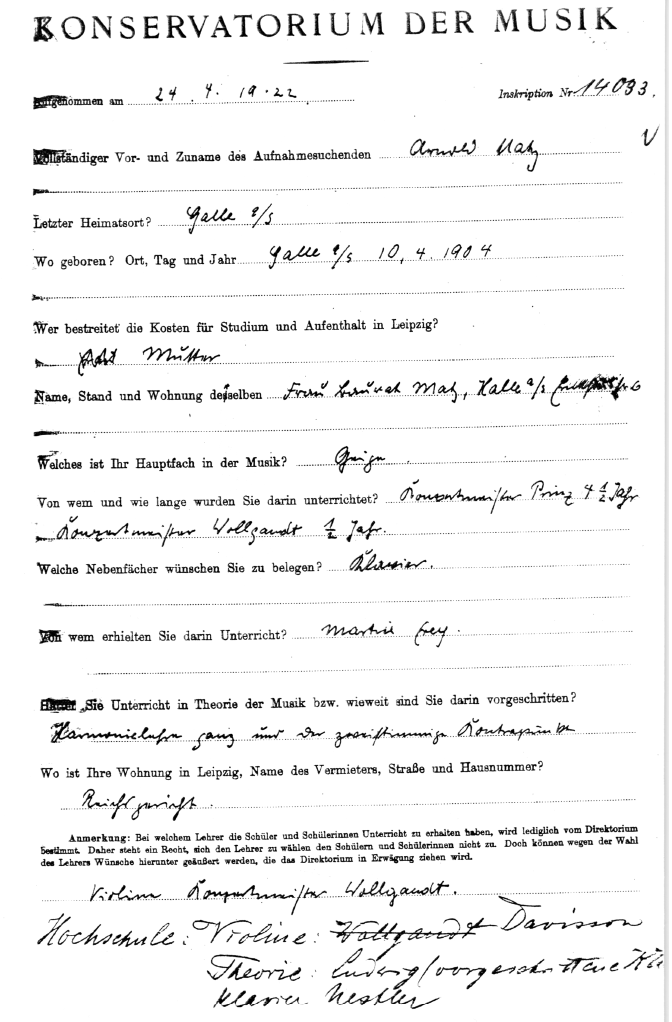 KONSERVATORIUM DER MUSIK
Aufgenommen am 24. 4. 1922 Inskription Nr. 14093.
Vollständiger Vor- und Zuname des Aufnahmesuchenden Arnold Matz
Letzter Heimatsort? Halle a/s
Wo geboren? Ort, Tag und Jahr Halle a/s 10. 4. 1904
Wer bestreitet die Kosten für Studium und Aufenthalt in Leipzig?
Mutter
Name, Stand und Wohnung desselben Frau Baurat Matz, Halle a/s
Welches ist Ihr Hauptfach in der Musik? Geige
Von wem und wie lange wurden Sie darin unterrichtet? Konzertmeister Prinz 4 1/2 Jahr
Konzertmeister Wollgandt 1/2 Jahr.
Welche Nebenfächer wünschen Sie zu belegen? Klavier.
Von wem erhielten Sie darin Unterricht? Martin Frey.
Hatten Sie Unterricht in Theorie der Musik bzw. wieweit sind Sie darin vorgeschritten?
Harmonielehre ganz und der zweistimmige Kontrapunkt
Wo ist Ihre Wohnung in Leipzig, Name des Vermieters, Straße und Hausnummer?
Reichsgericht.
Anmerkung: Bei welchem Lehrer die Schüler und Schülerinnen Unterricht zu erhalten haben, wird lediglich vom Direktorium
bestimmt. Daher steht ein Recht, sich den Lehrer zu wählen den Schülern und Schülerinnen nicht zu. Doch können wegen der Wahl
des Lehrers Wünsche hierunter geäußert werden, die das Direktorium in Erwägung ziehen wird.
Violine Konzertmeister Wollgandt.
Hochschule: Violine: Wollgandt Davisson
Theorie: Ludwig (vorgeschrittene
Klavier Nestler